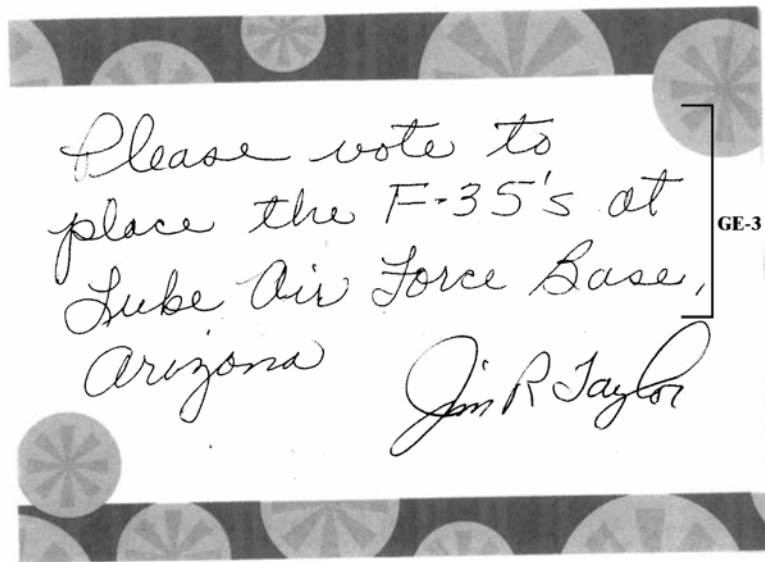 Please vote to
place the F-35's at
Luke Air Force Base,
Arizona
Jim R Taylor
GE-3